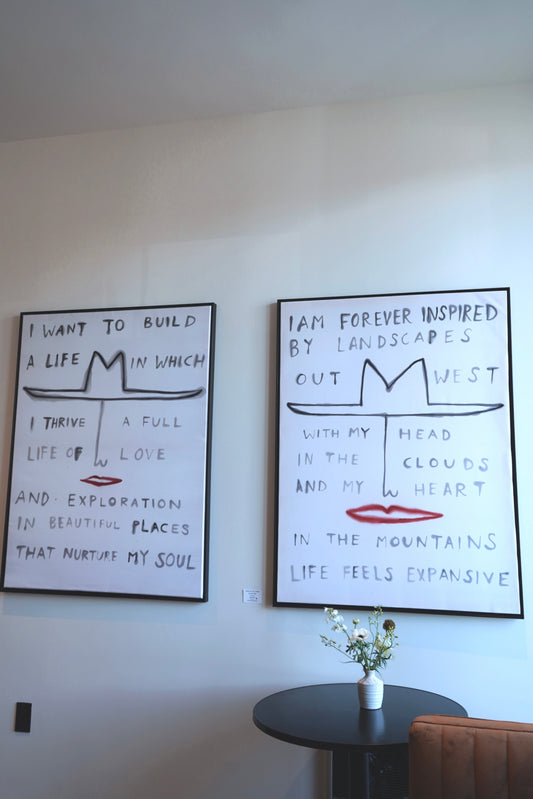 I WANT TO BUILD
A LIFE IN WHICH
I THRIVE A FULL
LIFE OF LOVE
AND EXPLORATION
IN BEAUTIFUL PLACES
THAT NURTURE MY SOUL
I AM FOREVER INSPIRED
BY LANDSCAPES
OUT WEST
WITH MY HEAD
IN THE CLOUDS
AND MY HEART
IN THE MOUNTAINS
LIFE FEELS EXPANSIVE